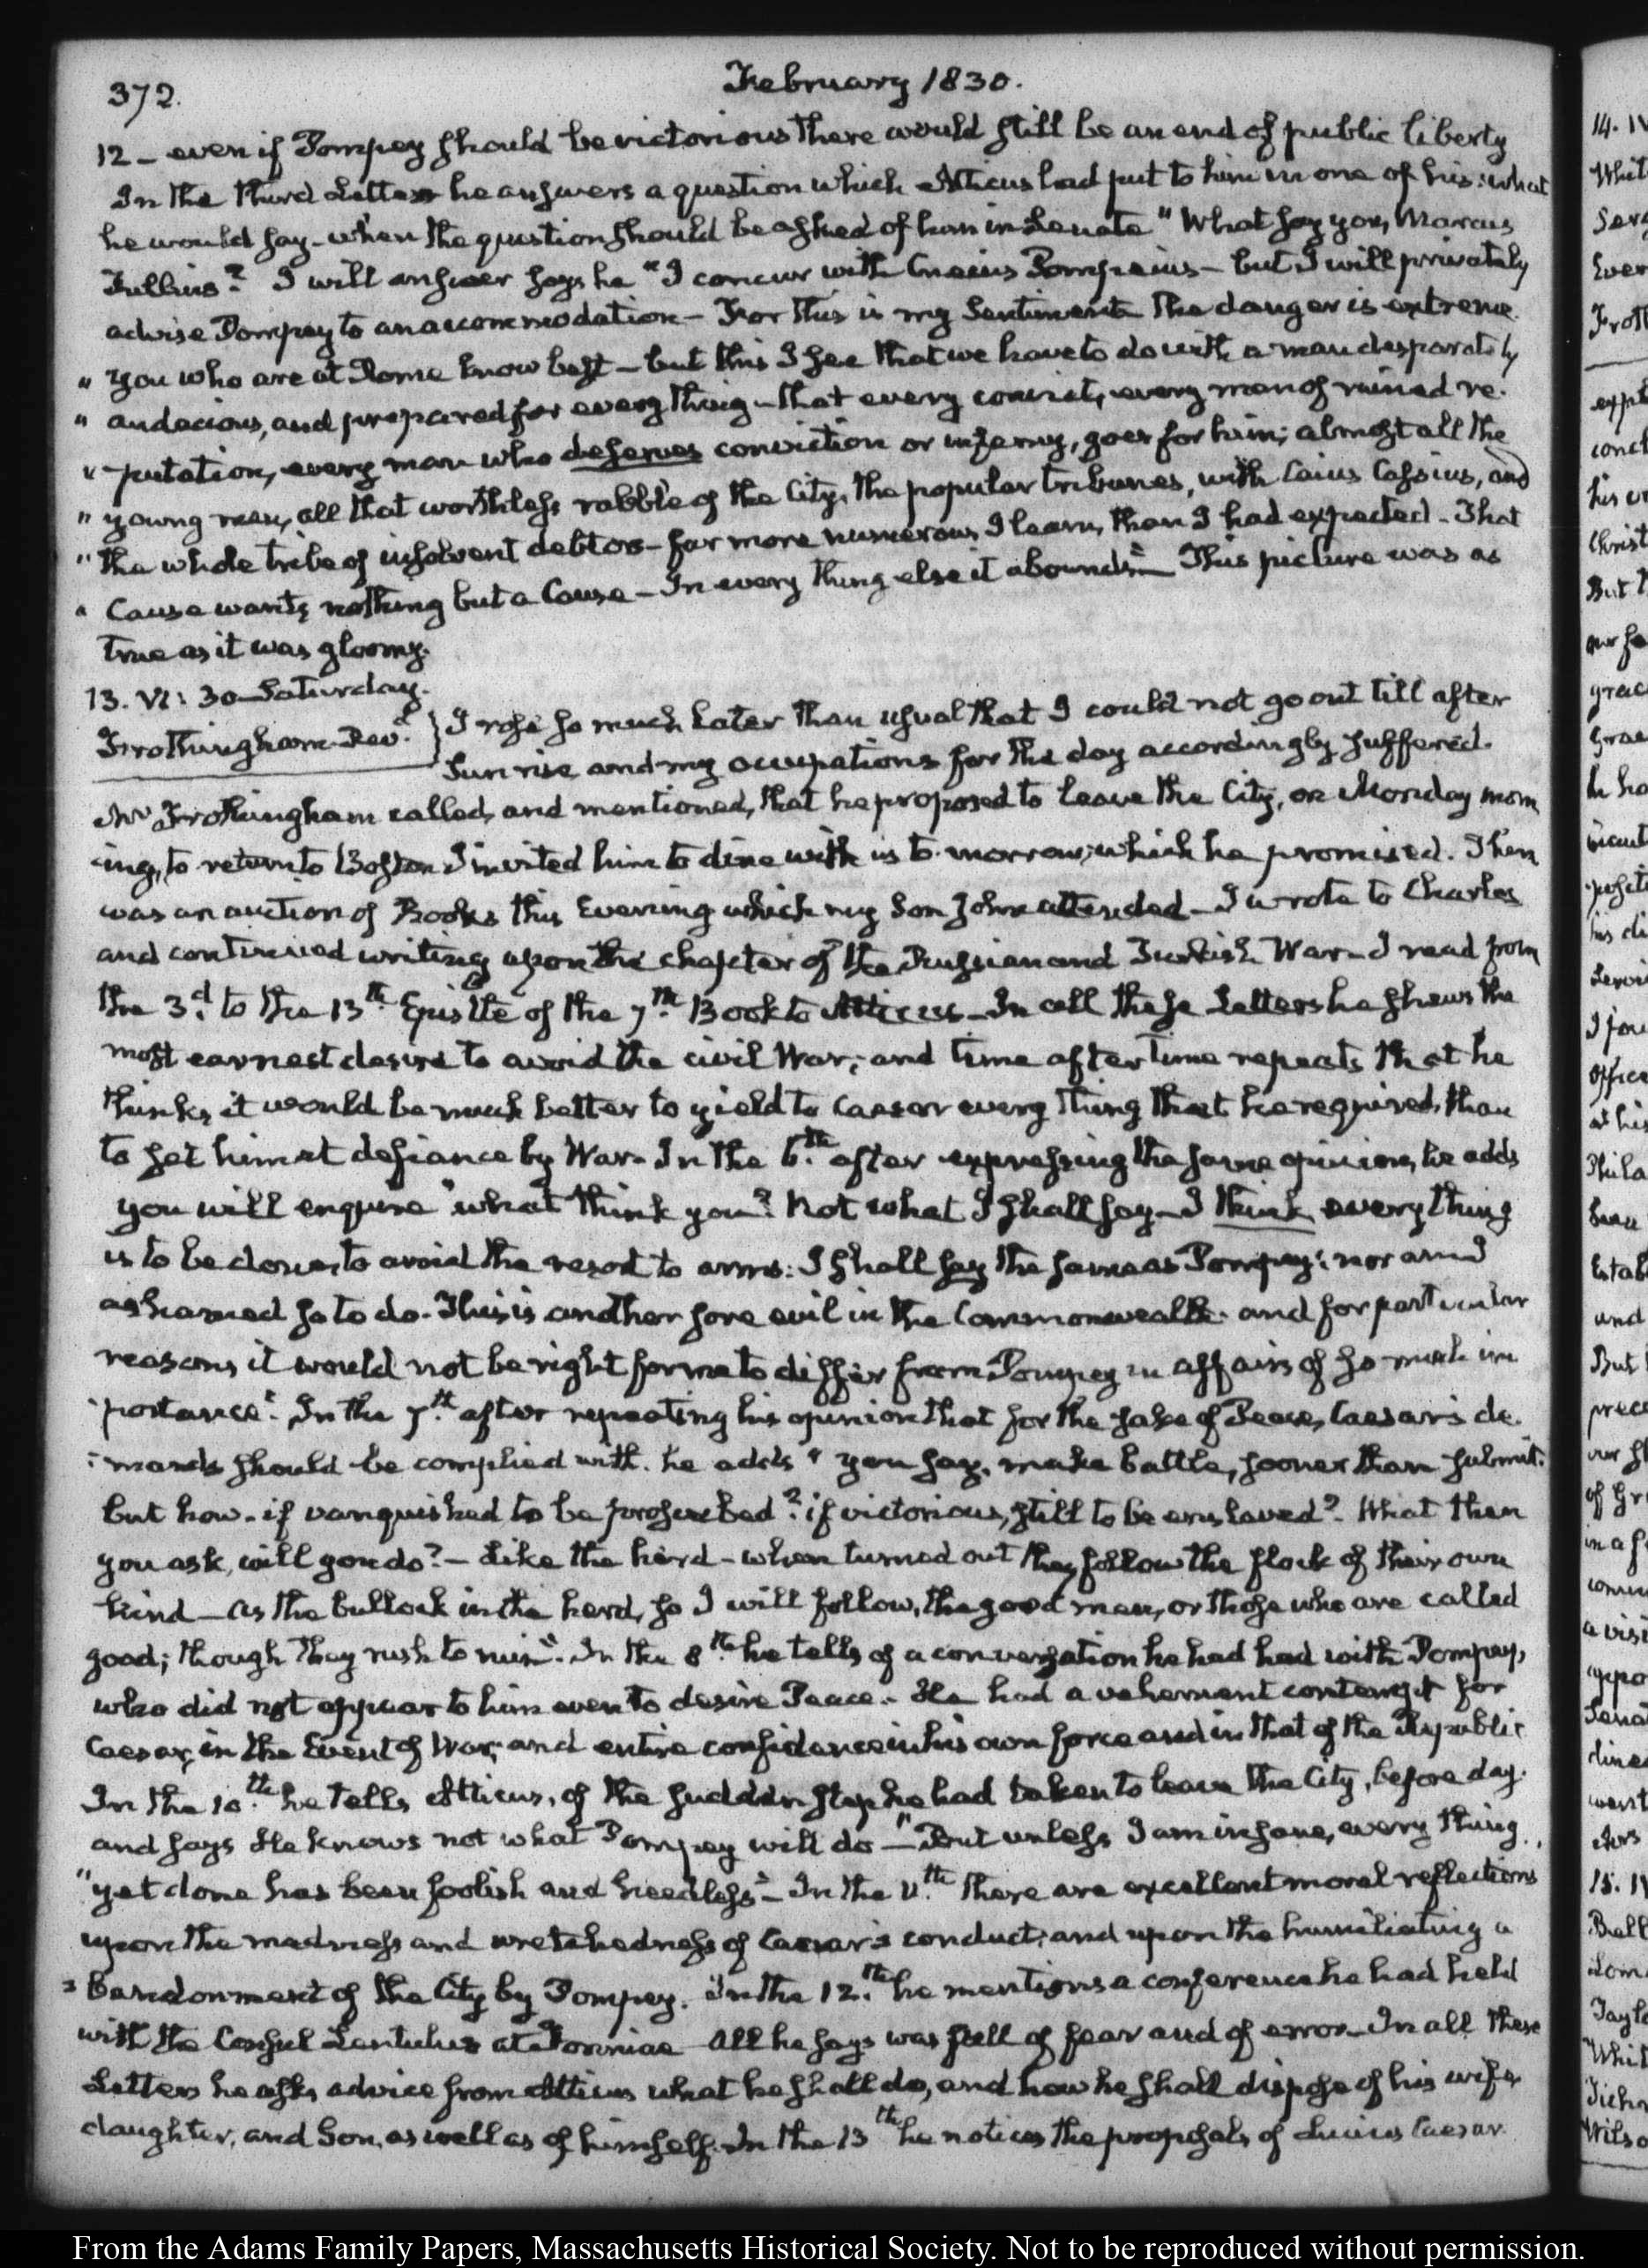 372.
February 1830.
12 – even if Pompey should be victorious there would still be an end of public liberty
In the third Letter he answers a question which Atticus had put to him in one of his: what
he would say – when the question should be asked of him in Senate "What say you, Marcus
Tullius? I will answer says he "I concur with Cnaeus Pompeius – but I will privately
advise Pompey to an accommodation – For this is my Sentiment. The danger is extreme.
" you who are at Rome know best – but this I see that we have to do with a man desperately
" audacious, and prepared for every thing – that every convict, every man of ruined re-
" -putation, every man who deserves conviction or infamy, goes for him; almost all the
" young men, all that worthless rabble of the City, the popular tribunes, with Caius Cassius, and
" the whole tribe of insolvent debtors – far more numerous, I learn, than I had expected – That
" Cause wants nothing but a Cause – In every thing else it abounds." – This picture was as
true as it was gloomy.
13. VI: 30 Saturday.
Frothingham Revd. } I rose so much later than usual that I could not go out till after
Sun rise and my occupations for the day accordingly suffered.
Mr Frothingham called, and mentioned, that he proposed to leave the City, on Monday morn
-ing, to return to Boston I invited him to dine with us to-morrow; which he promised. There
was an auction of Books this Evening which my Son John attended – I wrote to Charles
and continued writing upon the chapter of the Russian and Turkish War – I read from
the 3d. to the 13th. Epistle of the 7th. Book to Atticus – In all these Letters he shews the
most earnest desire to avoid the civil War; and time after time repeats that he
thinks it would be much better to yield to Caesar every thing that he required, than
to set him at defiance by War. In the 6th. after expressing the same opinion, he adds
you will enquire "what think you"? Not what I shall say – I think every thing
is to be done, to avoid the resort to arms: I shall say the same as Pompey: nor am I
ashamed so to do. This is another sore evil in the Commonwealth. and for particular
reasons, it would not be right for me to differ from Pompey in affairs of so much im
-portance". In the 7th. after repeating his opinion that for the sake of Peace, Caesar's de-
-mands should be complied with. he adds " you say, make battle, sooner than submit.
but how. if vanquished to be proscribed? if victorious, still to be enslaved? What then
you ask, will you do? – Like the herd – when turned out they follow the flock of their own
kind – as the bullock in the herd, so I will follow, the good men, or those who are called
good; though they rush to ruin". In the 8th. he tells of a conversation he had had with Pompey,
who did not appear to him even to desire Peace. He had a vehement contempt for
Caesar, in the Event of War, and entire confidence in his own force and in that of the Republic
In the 10th. he tells Atticus, of the sudden step he had taken to leave the City, before day.
and says He knows not what Pompey will do – "But unless I am insane, every thing
"yet done has been foolish and heedless" – In the 11th. there are excellent moral reflections
upon the madness and wretchedness of Caesar's conduct; and upon the humiliating a
-bandonment of the City by Pompey. In the 12th. he mentions a conference he had held
with the Consul Lentulus at Formiae – All he says was full of fear and of error – In all these
Letters he asks advice from Atticus what he shall do, and how he shall dispose of his wife
daughter, and Son, as well as of himself. In the 13th he notices the proposals of Lucius Caesar.
From the Adams Family Papers, Massachusetts Historical Society. Not to be reproduced without permission.